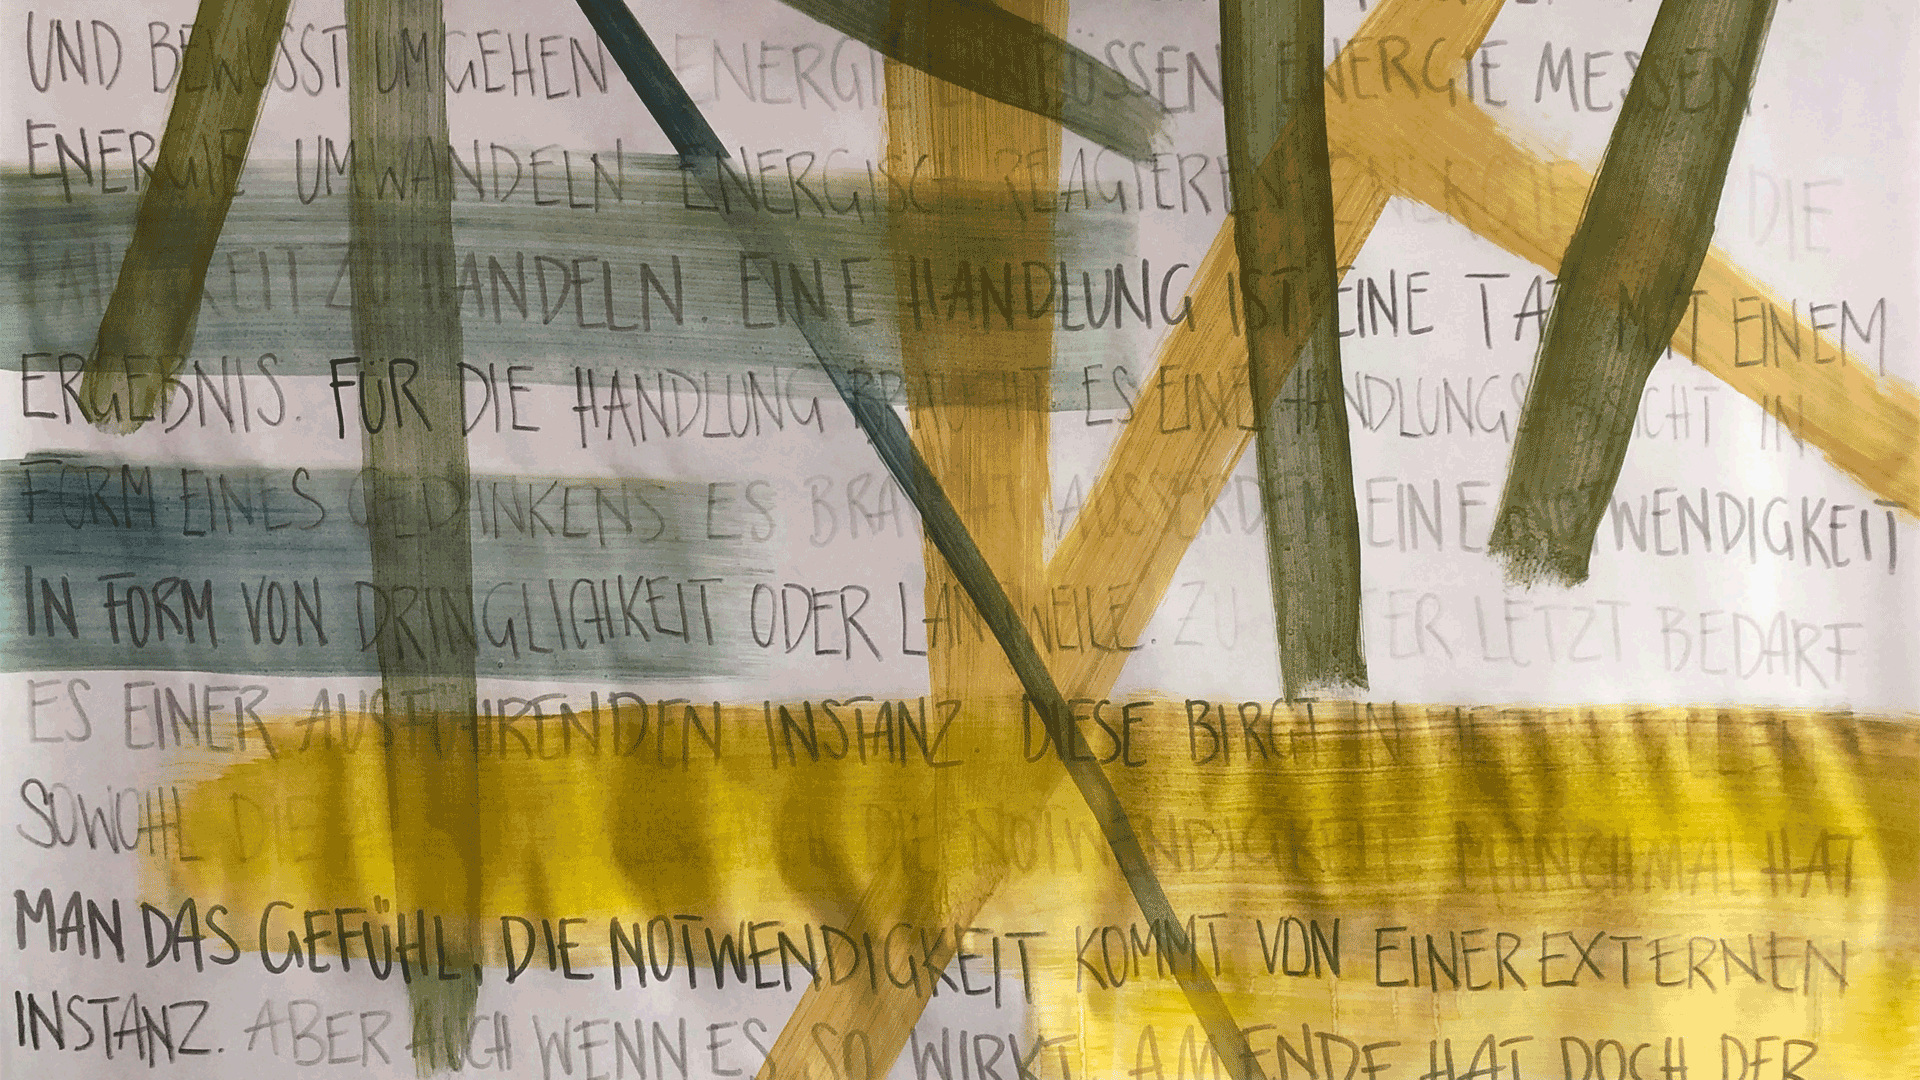 UND BEWUSST UMGEHEN. ENERGIE EINBÜSSEN. ENERGIE MESSEN.
ENERGIE UMWANDELN. ENERGISCH REAGIEREN. DIE
FÄHIGKEIT ZU HANDELN. EINE HANDLUNG IST EINE TAT MIT EINEM
ERGEBNIS. FÜR DIE HANDLUNG BRAUCHT ES EINE HANDLUNGSABSICHT IN
FORM EINES GEDANKENS. ES BRAUCHT AUSSERDEM EINE NOTWENDIGKEIT
IN FORM VON DRINGLICHKEIT ODER LANGWEILE. ZU GUTER LETZT BEDARF
ES EINER AUSFÜHRENDEN INSTANZ. DIESE BIRGT IN
SOWOHL DIE DIE NOTWENDIGKEIT. MANCHMAL HAT
MAN DAS GEFÜHL, DIE NOTWENDIGKEIT KOMMT VON EINER EXTERNEN
INSTANZ. ABER AUCH WENN ES SO WIRKT, AM ENDE HAT DOCH DER